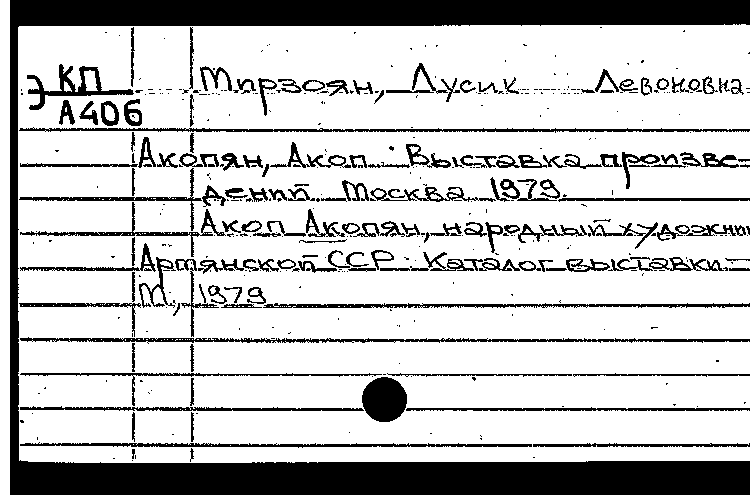 Э КП
А406
Мирзоян, Лусик Левоновна
Акопян, Акоп. Выставка произве-
дений. Москва 1979.
Акоп Акопян, народный художни
Армянской ССР. Каталог выставки.—
М., 1979